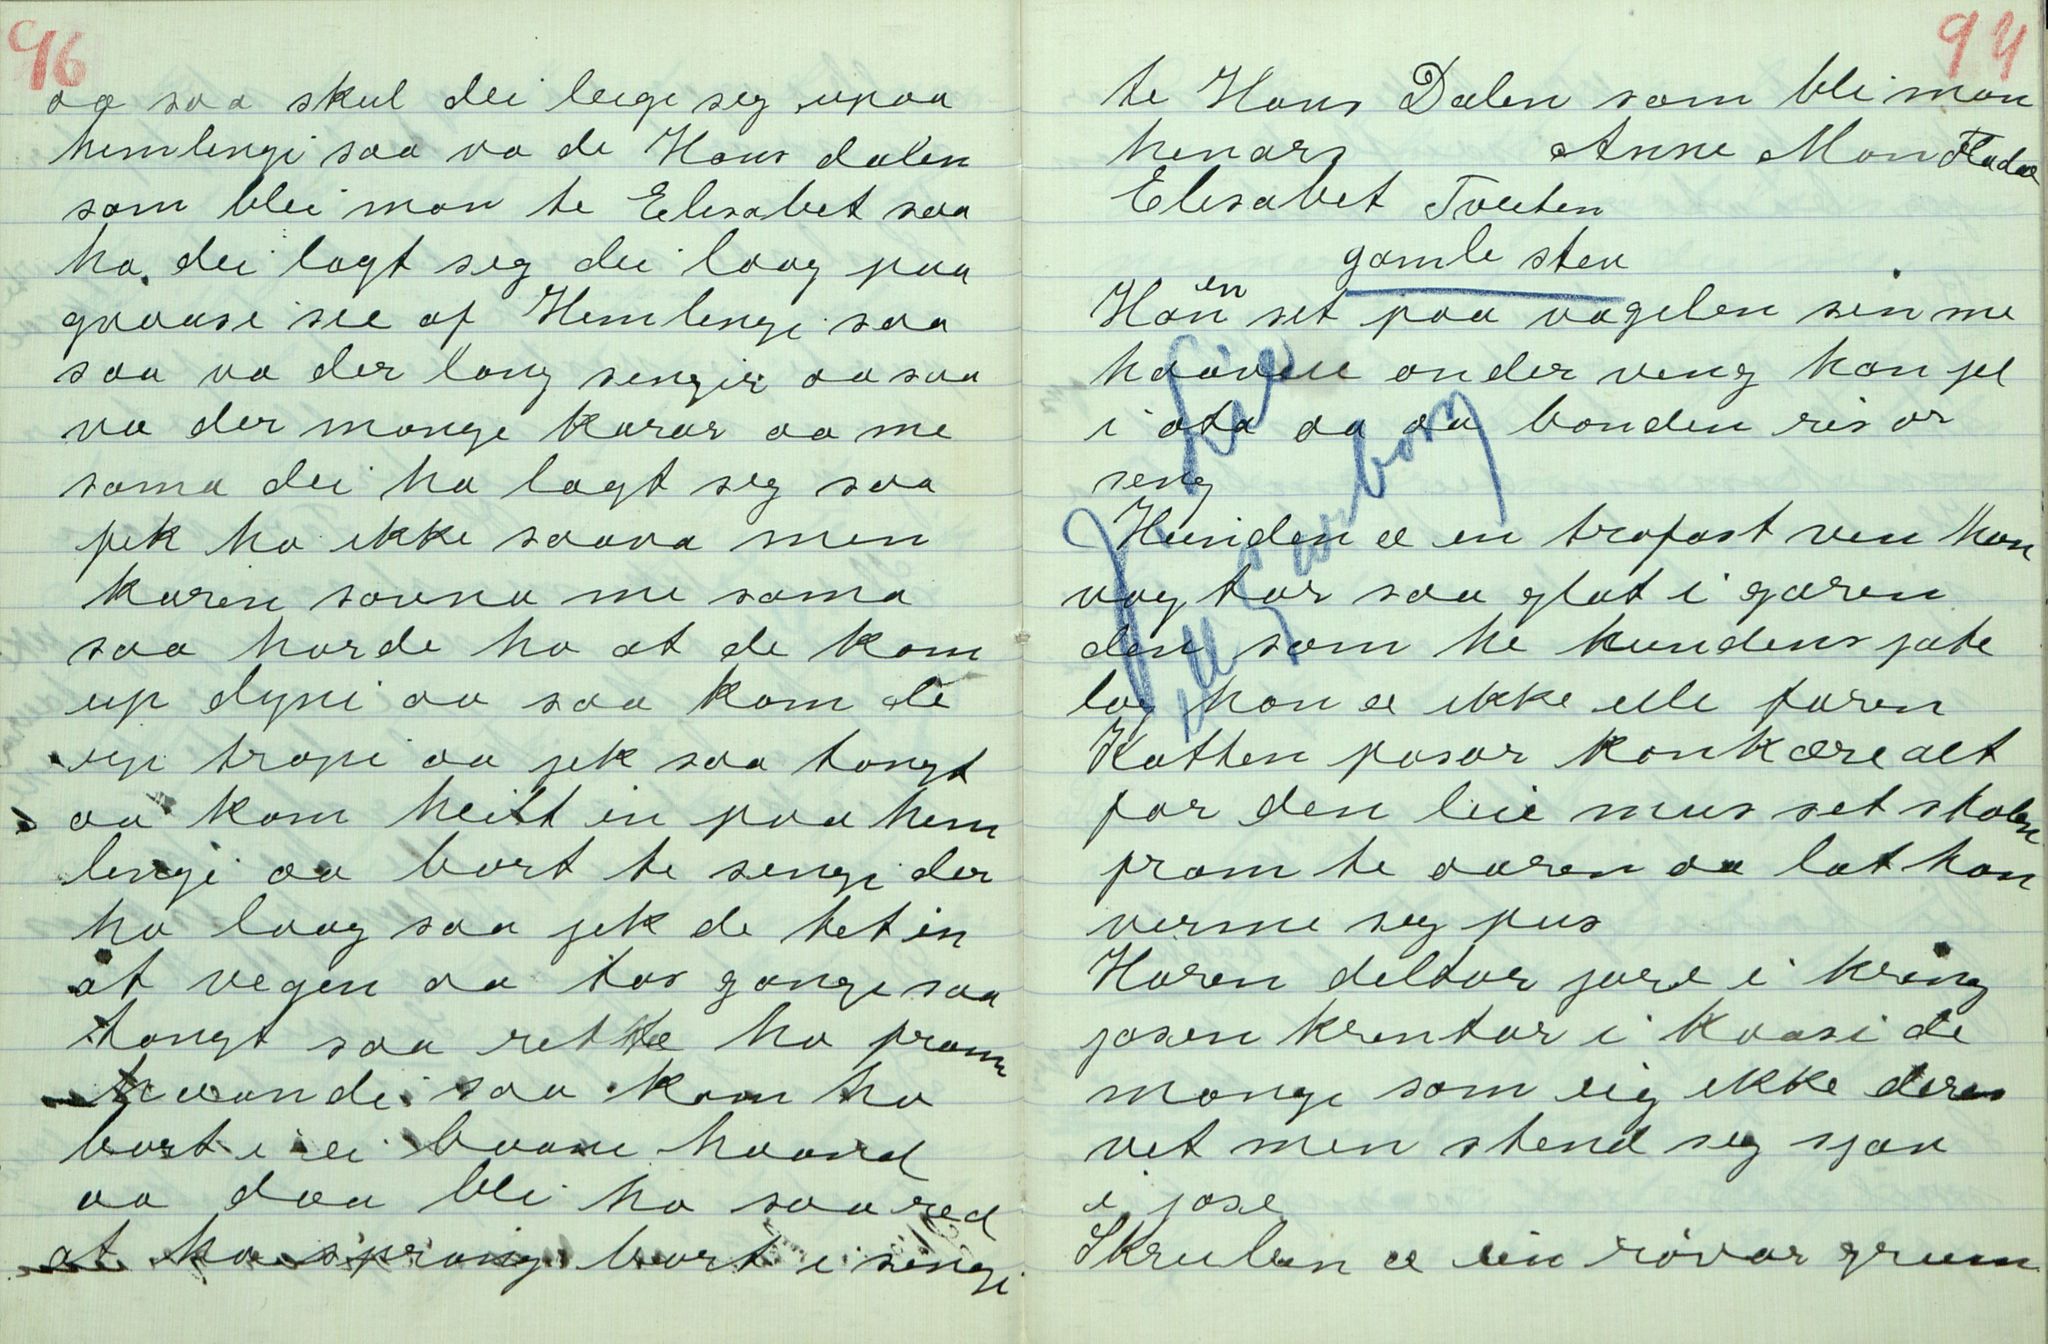 96
aa saa skul dei leige seg upaa
hemlengi saa va de Hans dalen
som blei man te Elisabet saa
ha dei lagt seg dei laag paa
graase sie af Hemlengi saa
saa va der lang sengir aa saa
va der mange karar aa me
sama dei ha lagt seg saa
fek ha ikke saava men
karen savna me sama
saa horde ho at de kom
up dyni aa saa kom de
up tropi aa gek saa tongt
aa kom heilt in paa hem
lengi aa bort te sengi der
ha laag saa gek de tet in
at vegen aa tos gange saa
tongt saa rette ha fram
haandi saa kom ha
bort i ei baane haand
aa daa blei ha saa red
at ha sprang bort i sengi
94
te Hans Dalen som blei man
henars Anne Mon Fladae
Elisabet Tveiten
gamle stev
Hanen set paa vagelen sin me
haavue onder veng han gel
i ota aa aa bonden ris or
seng
Hunden æ en trofast ven han
vagtar saa glat i garen
den som he hundens gote
lag han æ ikke ille faren
Katten pasar kan kære alt
for den leie mus set stolen
fram te aaren aa lat han
verme seg pus
Haren deltar jore i kring
gosen krentar i kaasi de
mange som eig ikke deres
vet men stend seg sjøv
i pose
Skruben æ ein røvar grum
J. Lie
till Garborg